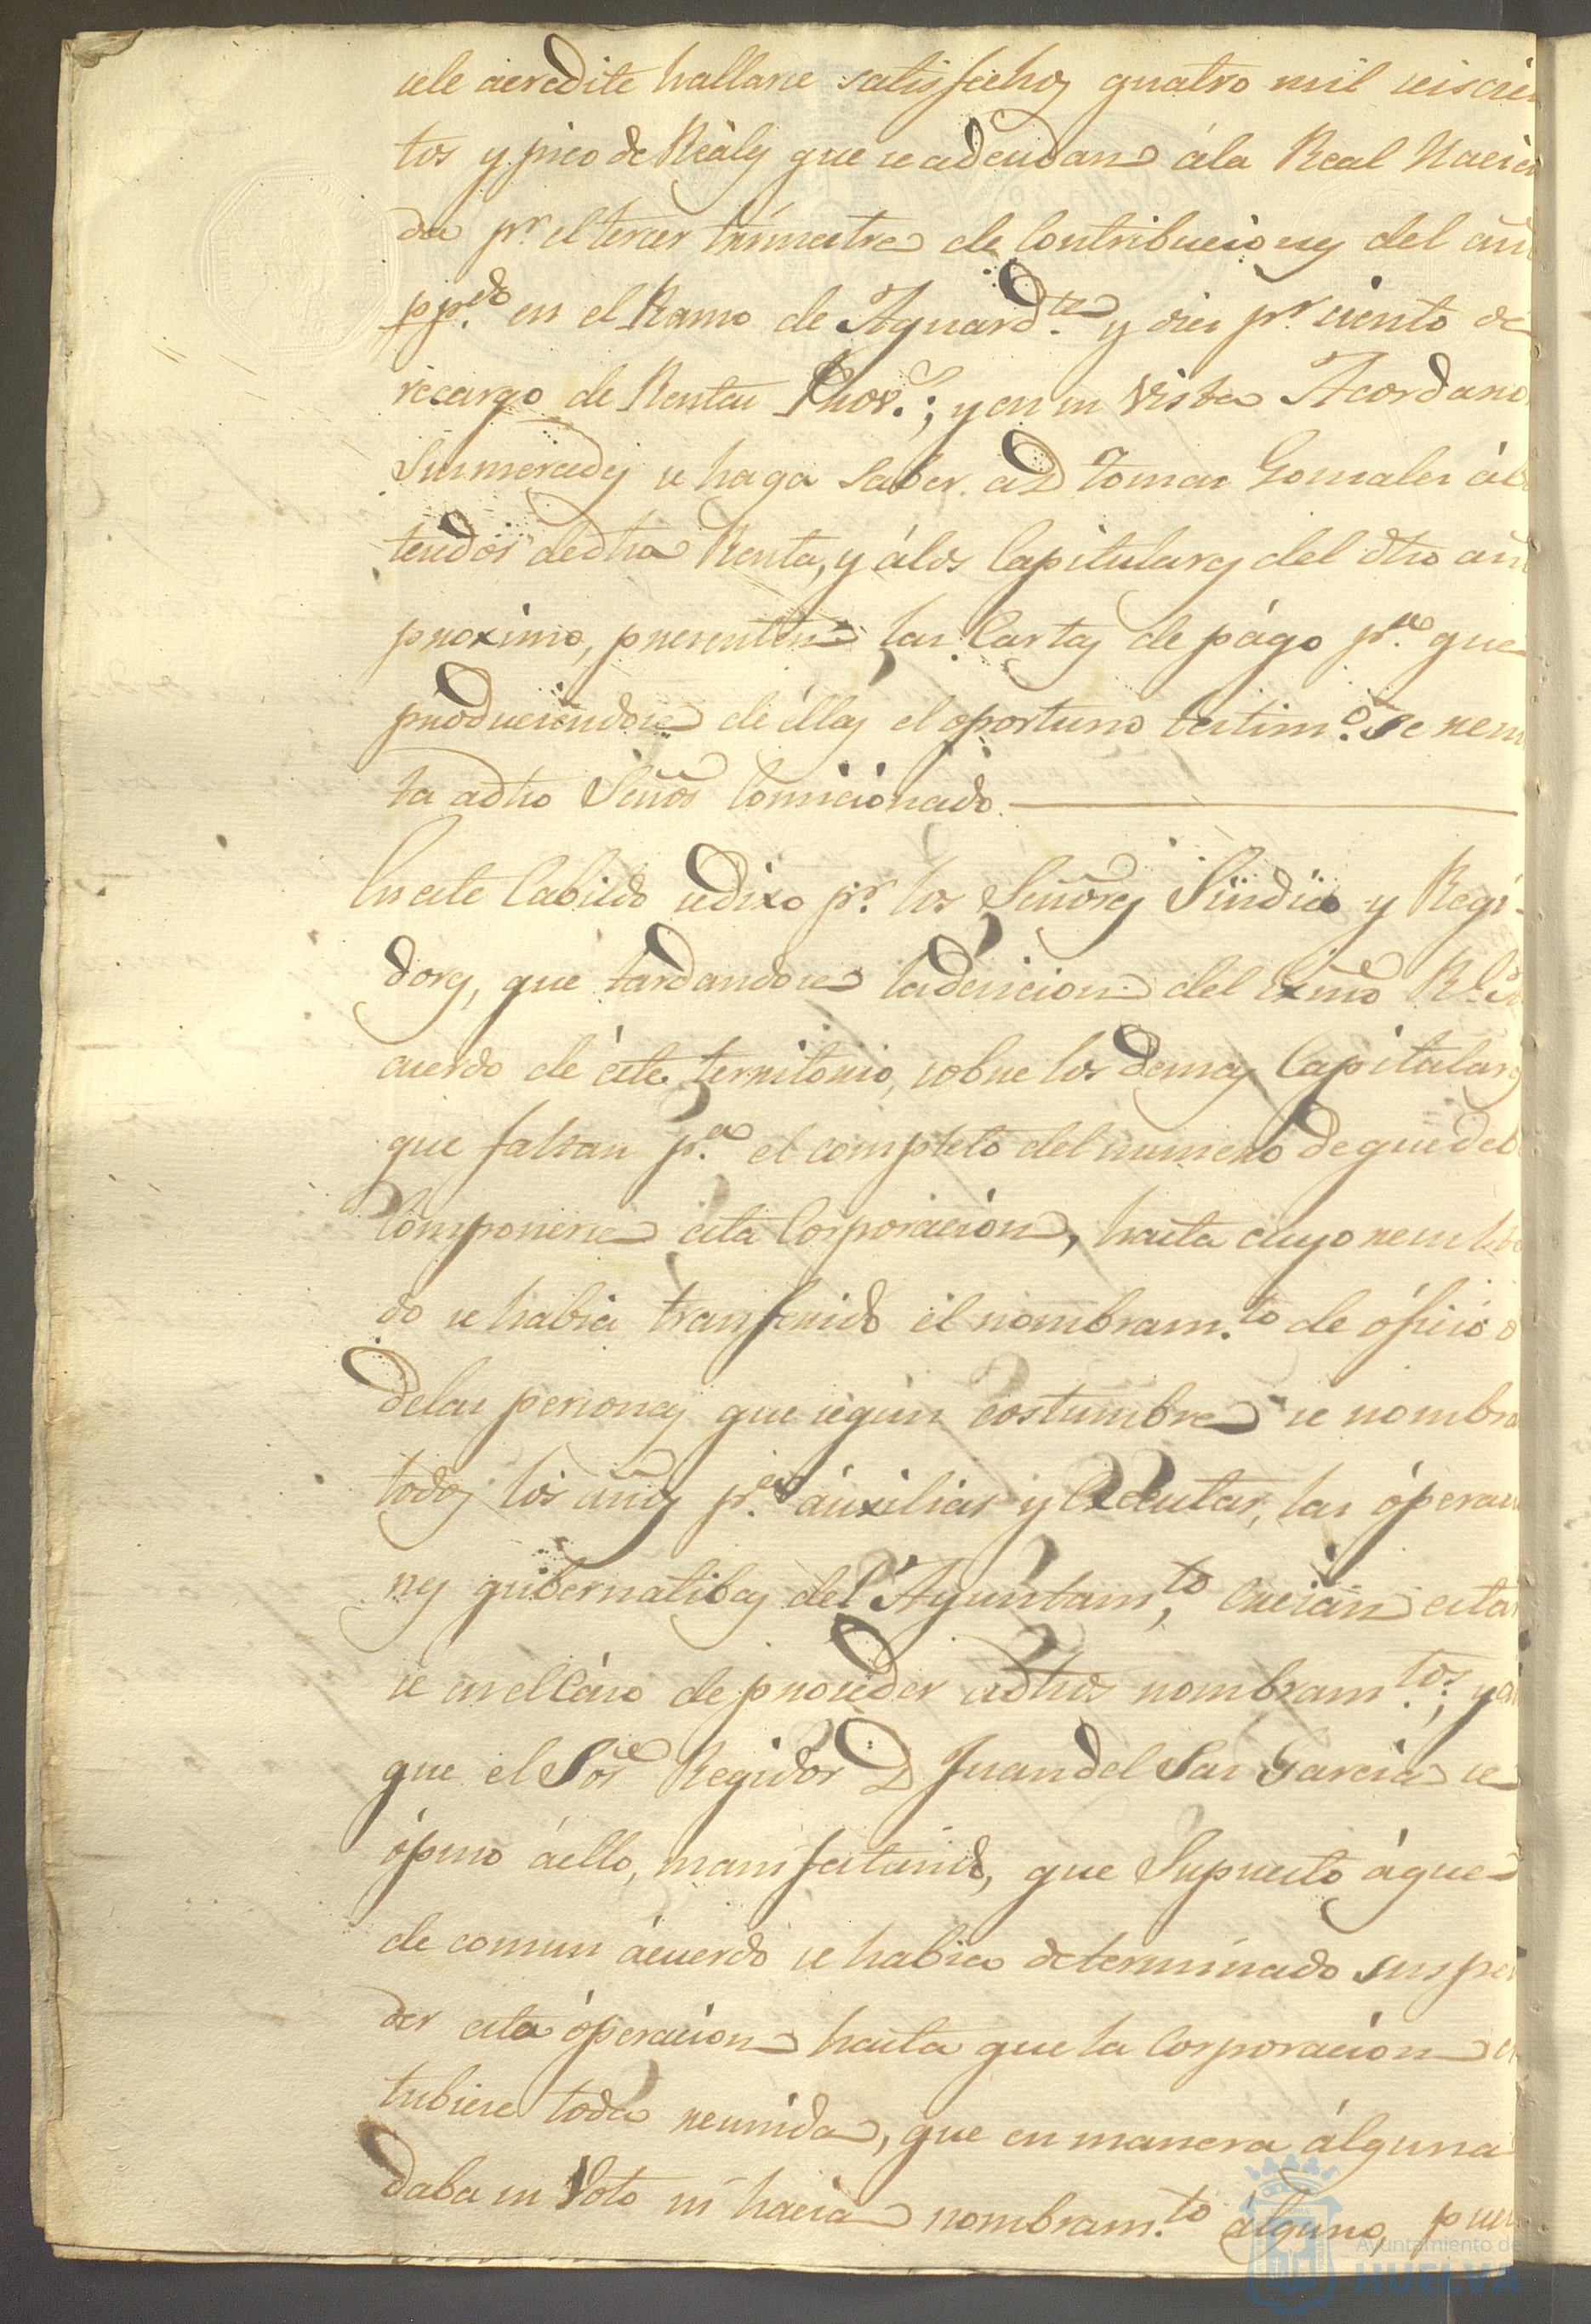 sele acredite hallarse satisfechos quatro mil seiscien
tos y pico de Reales que se adeudan á la Real Hacien
da pr. el tercer trimestre de Contribuciones del año
pp.do en el Ramo de Aguard.te y diez pr. ciento de
recargo de Rentas Prov.s; y en su vista Acordaron
Sus mercedes se haga saber a D Tomas Gonzales
tendor de dha Renta, y á los Capitulares del dho año
proximo, presenten las Cartas de págo pr.a que
produciendose de éllas el oportuno testim.o se remi
ta a dho Señor Comicionado.
En este Cabildo se dixo pr. los Señores Síndico y Regi-
dores, que tardandose la decicion del Exmo R.l A
cuerdo de éste territorio, sobre los demas Capitulares
que faltan pr.a el completo del numero de que debe
Componerse esta Corporacion, hasta cuyo resulta
do se habia transferido el nombram.to de óficio
de las personas que según costumbre se nombra
todos los años pr.a áuxiliar y Executar, las óperacio
nes gubernatibas del Ayuntam.to, Creian estar
se en el Cáso de proceder a dhos nombram.tos; y
que el Sor Regidor D Juan del Sar Garcia se
ópuso á ello, manifestando, que Supuesto á que
de comun ácuerdo se habia determinado suspen
der esta óperacion hasta que la Corporacion es
tubiese toda reunida, que en manera álguna
daba su Voto ni hacia nombram.to álguno, pues
Ayuntamiento de
HUELVA